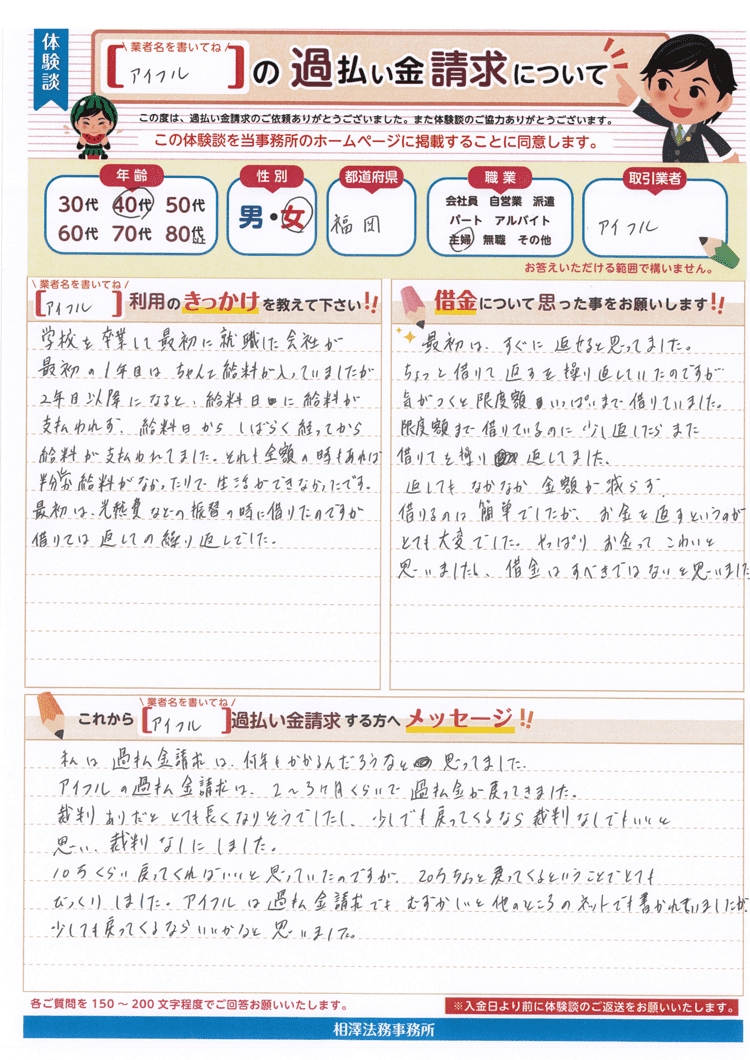 体験談
業者名を書いてね
[アイフル]の過払い金請求について
この度は、過払い金請求のご依頼ありがとうございました。また体験談のご協力ありがとうございます。
この体験談を当事務所のホームページに掲載することに同意します。
年齢
30代 40代 50代
60代 70代 80代以上
性別
男・女
都道府県
福岡
職業
会社員 自営業 派遣
パート アルバイト
主婦 無職 その他
取引業者
アイフル
お答えいただける範囲で構いません。
業者名を書いてね
[アイフル]利用のきっかけを教えて下さい!!
学校を卒業して最初に就職した会社が
最初の1年目はちゃんと給料が入っていましたが
2年目以降になると、給料日に給料が
支払われず、給料日からしばらく経ってから
給料が支払われてました。それも全額の時もあれば
半分給料がなかったりで生活ができなかったです。
最初は、光熱費などの振替の時に借りたのですが
借りては返しての繰り返しでした。
借金について思った事をお願いします!!
最初は、すぐに返せると思ってました。
ちょっと借りて返すを繰り返していたのですが
気がつくと限度額いっぱいまで借りていました。
限度額まで借りているのに少し返したらまた
借りてを繰り返してました。
返してもなかなか金額が減らず
借りるのは簡単でしたが、お金を返すというのが
とても大変でした。やっぱりお金ってこわいと
思いましたし、借金はすべきではないと思いました
業者名を書いてね
これから[アイフル]過払い金請求する方へメッセージ!!
私は過払金請求は、何年もかかるんだろうなと思ってました。
アイフルの過払金請求は、2～3ヶ月くらいで過払金が戻ってきました。
裁判ありだととても長くなりそうでしたし、少しでも戻ってくるなら裁判なしでもいいと
思い、裁判なしにしました。
10万くらい戻ってくればいいと思っていたのですが、20万ちょっと戻ってくるということでとても
びっくりしました。アイフルは過払金請求でもむずかしいと他のところのネットでも書かれていましたが、
少しでも戻ってくるならいいかなと思いました。
各ご質問を150～200文字程度でご回答お願いいたします。
※入金日より前に体験談のご返送をお願いいたします。
相澤法務事務所